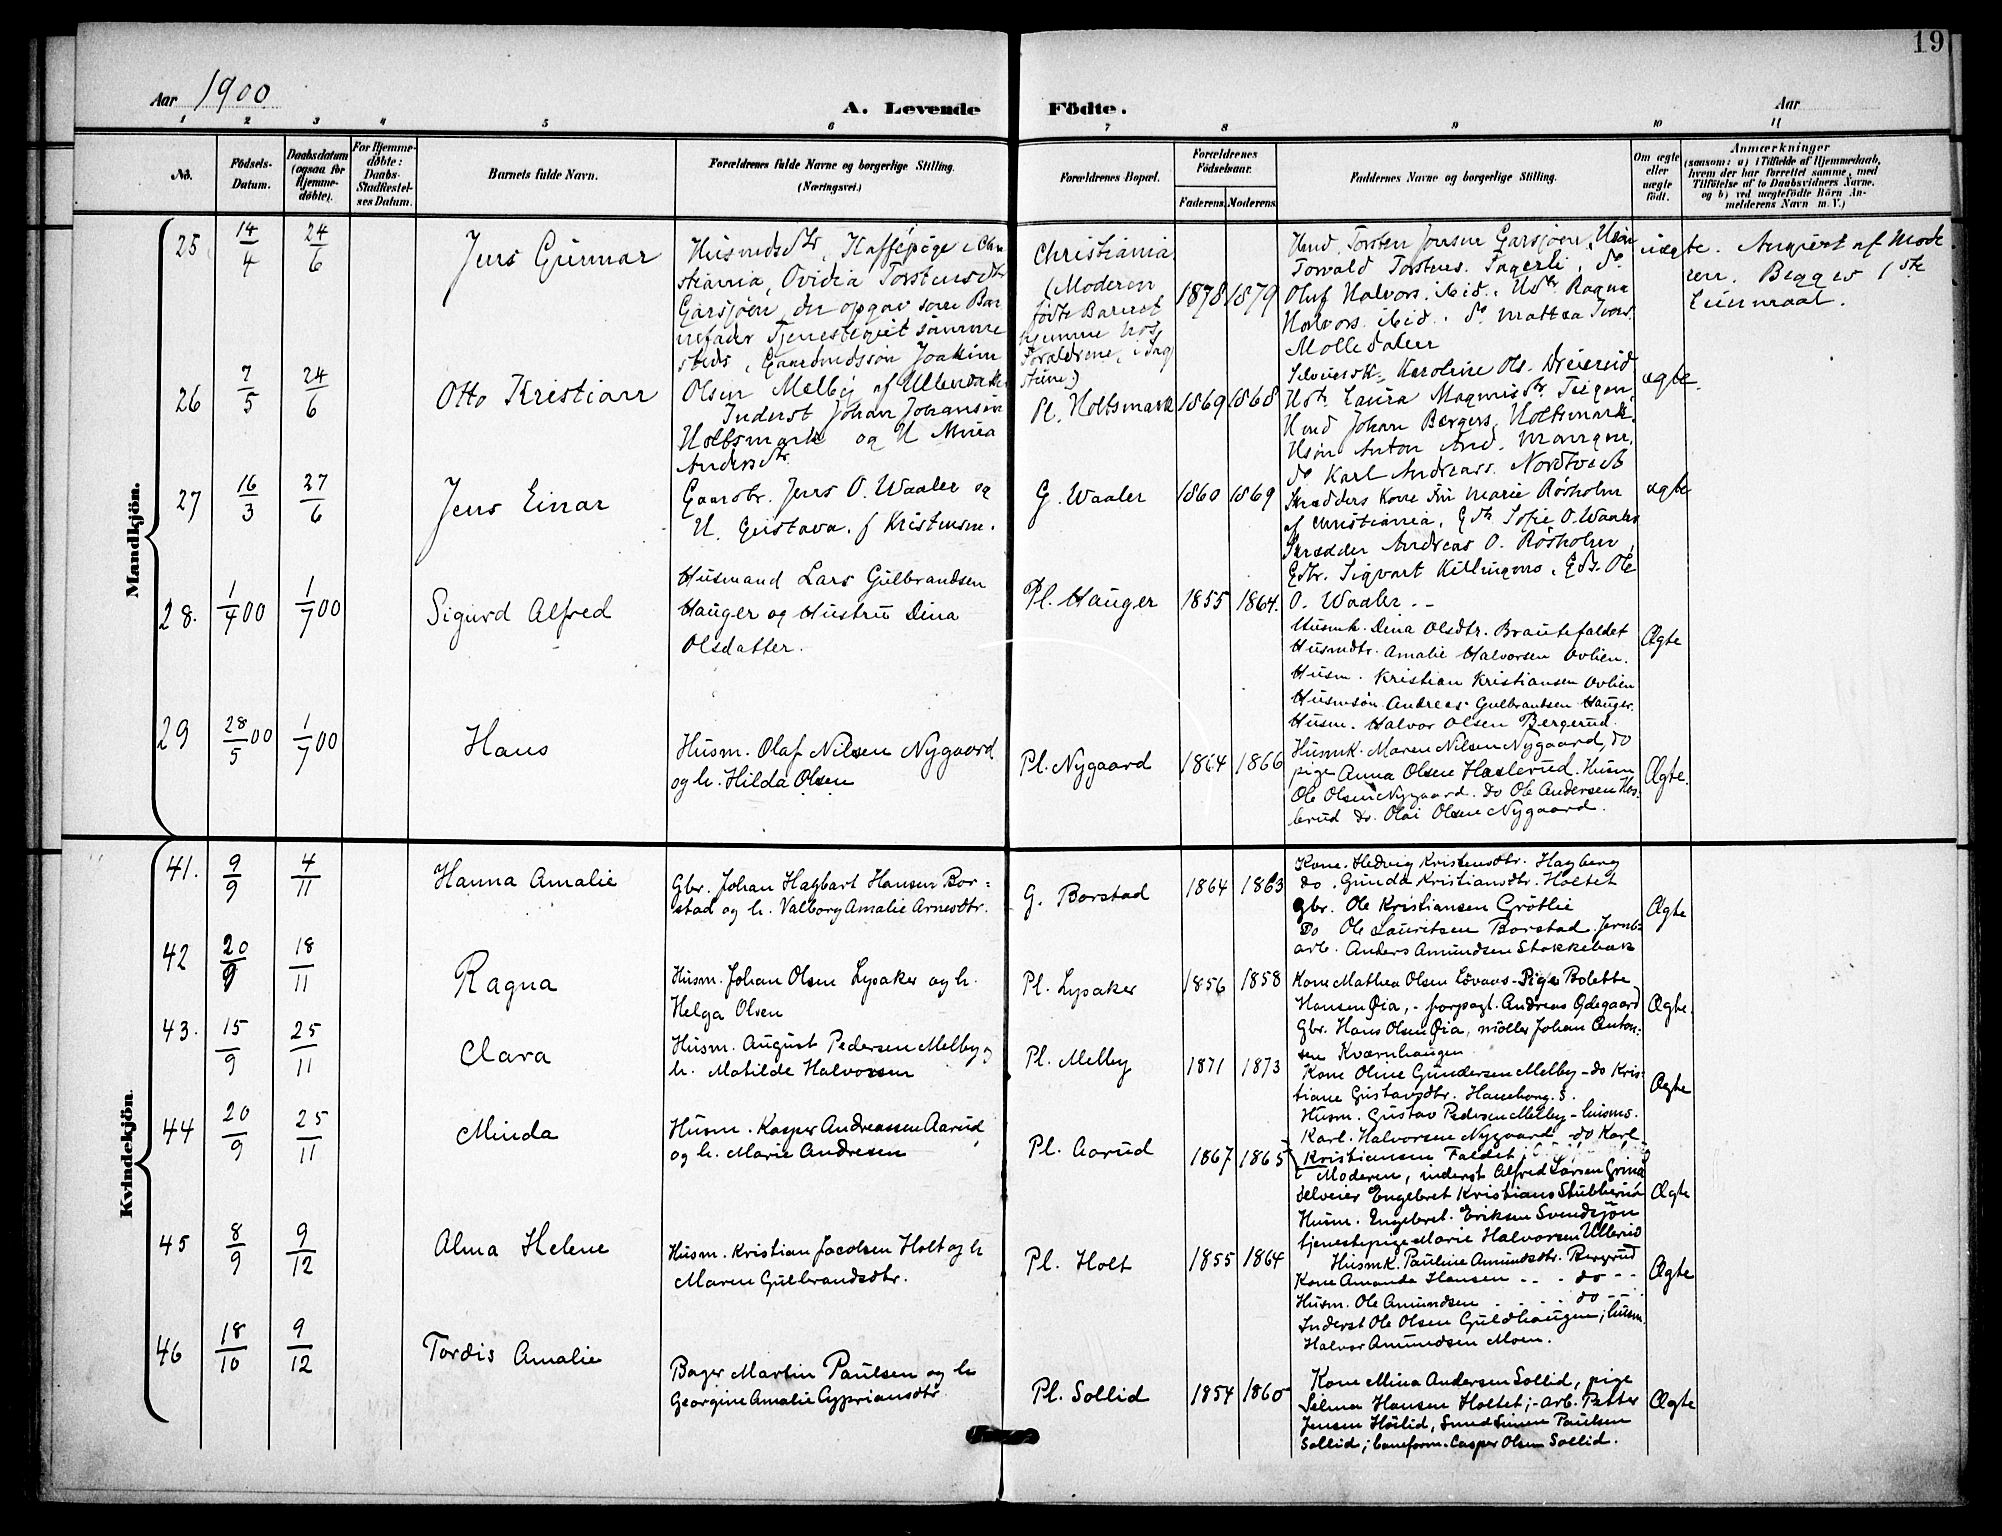 19
Aar 1900
A. Levende Födte.
Aar
1 2 3 4 5 6 7 8 9 10 11
No.
Födsels-
Datum.
Daabsdatum
(ogsaa for
Hjemme-
døbte).
For Hjemme-
døbte:
Daabs-
Stadfæstel-
ses Datum.
Barnets fulde Navn.
Forældrenes fulde Navne og borgerlige Stilling.
(Næringsvei.)
Forældrenes Bopæl.
Forældrenes
Födselsaar.
Faderens. Moderens.
Faddernes Navne og borgerlige Stilling.
Om ægte
eller
uægte
födt.
Anmærkninger
(saasom: a) i Tilfælde af Hjemmedaab,
hvem der har forrettet samme, med
Tilföielse af to Daabsvidners Navne.
og b) ved uægtefödte Börn An-
melderens Navn m. V.)
Mandkjön.
25
14/4
24/6
Jens Gunnar
Husmdsdtr, Kaffépige i Chri
stiania, Ovidia Torstensdtr
Garsjøen, der opgav som Bar
nefader Tjenestegut samme
steds, Gaardmdssøn Joakim
Olsen Melby af Ullensaker
Christiania
(Moderen
fødte Barnet
hjemme hos
Forældrene, i Fag
stune)
1878 1879
Hmd. Torsten Jensen Garsjøen, Hsøn
Torvald Torstens. Fagerli, do
Oluf Halvors. ibid., Hdtr. Ragna
Halvors. ibid. do Mattea Ivers.
Mølledalen
uægte. Angivet af Mode
ren. Begges 1ste
Leiermaal.
26
7/5
24/6
Otto Kristian
Inderst Johan Johansen
Holtsmark og H Mina
Andersdtr.
Pl. Holtsmark
1869 1868
Karoline Ols. Dreiereid
Hdtr. Laura Magnusdtr. Teigen,
Hmd Johan Bergers. Holtsmark.
Hsøn Anton And.
do Karl Andreass. Nordtvedt
ægte.
27
16/3
27/6
Jens Einar
Gaardbr. Jens O. Waaler og
H. Gustava f. Kristensen.
G. Waaler
1860 1869
Skrædders Kone Fru Marie Røsholm
af Christiania, Gdtr Sofie O. Waaler
Skrædder Andreas O. Røsholm,
Gdbr. Sigvart Killingmo, Gds. Ole
O. Waaler. -
ægte
28.
1/4 00
1/7 00
Sigurd Alfred
Husmand Lars Gulbrandsen
Hauger og Hustru Dina
Olsdatter.
Pl. Hauger
1855 1864.
Husmk. Dina Olsdtr. Brautefaldet
Husmdtr. Amalie Halvorsen Ovlien.
Husm. Kristian Kristiansen Ovlien
Husmsøn Andreas Gulbrandsen Hauger.
Husm. Halvor Olsen Bergerud.
Ægte
29
28/5 00
1/7 00
Hans
Husm. Olaf Nilsen Nygaard
og h. Hilda Olsen
Pl. Nygaard
1864 1866
Husmk. Maren Nilsen Nygaard, do
pige Anna Olsen Haslerud. Husm
Ole Olsen Nygaard. do Ole Andersen Has-
lerud do. Olai Olsen Nygaard.
Ægte.
Kvindekjön.
41.
9/9
4/11
Hanna Amalie
Gbr. Johan Hagbart Hansen Bor=
stad og h. Valborg Amalie Arnesdtr.
G. Borstad
1864 1863
Kone. Hedvig Kristensdtr. Hagberg
do. Gunda Kristiansdtr. Holtet
gbr. Ole Kristiansen Grötlie
Do Ole Lauritsen Borstad. Jernb=
arb. Anders Amundsen Stokkebæk
Ægte
42
20/9
18/11
Ragna
Husm. Johan Olsen Lysaker og h.
Helga Olsen
Pl. Lysaker
1856 1858
Kone Mathea Olsen Lövaas - Pige Bolette
Hansen Øia, - forpagt. Andreas Ødegaard
Gbr. Hans Olsen Øia, møller Johan Anton-
sen Kværnhaugen
Ægte.
43.
15/9
25/11
Clara
Husm. August Pedersen Melby og
h. Matilde Halvorsen
Pl. Melby
1871 1873
Kone Oline Gundersen Melby - do Kris-
tiane Gustavsdtr. Haneborg. S.
Husm. Gustav Pedersen Melby - husms.
Karl. Halvorsen Nygaard do Karl
Kristiansen Faldet
Ægte
44
20/9
25/11
Minda
Husm. Kasper Andreassen Aarud
og h. Marie Andresen
Pl. Aarud
1867 1865
Moderen, inderst Alfred Larsen Grina
selveier Engebret Kristians Stubberud
Husm. Engebret Eriksen Svendsjön
tjenestepige Marie Halvorsen Ullerud
Ægte
45
8/9
9/12
Alma Helene
Husm. Kristian Jacobsen Holt og h
Maren Gulbrandsdtr.
Pl. Holt
1855 1864
Husmk. Pauline Amundsdtr. Bergrud
Kone Amanda Hansen - - do - -
Husm. Ole Amundsen do - -
Inderst Ole Olsen Guldhaugen; husm.
Halvor Amundsen Moen.
Ægte
46
18/10
9/12
Tordis Amalie
Bager Martin Paulsen og h
Georgine Amalie Cypriansdtr
Pl. Sollid
1854 1860
Kone Mina Andersen Sollid, pige
Selma Hansen Holtet; - arb. Petter
Jensen Höilid, Smed Simen Paulsen
Sollid; baneform. Casper Olsen Sollid.
Ægte